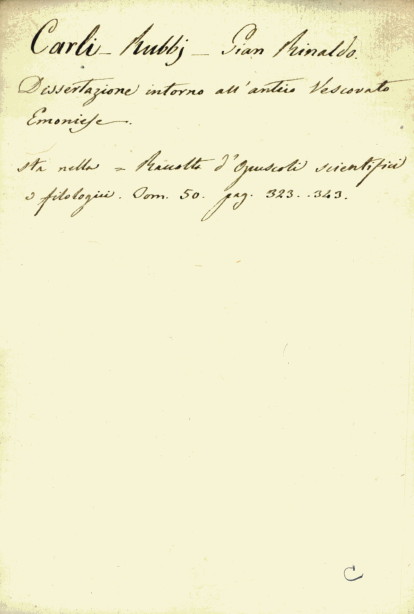 Carli - Rubbj - Gian Rinaldo.
Dissertazione intorno all'antico Vescovato
Emoniese.
sta nella = Raccolta d'Opuscoli scientifici
e filologici. Tom. 50. pag. 323..343.
C